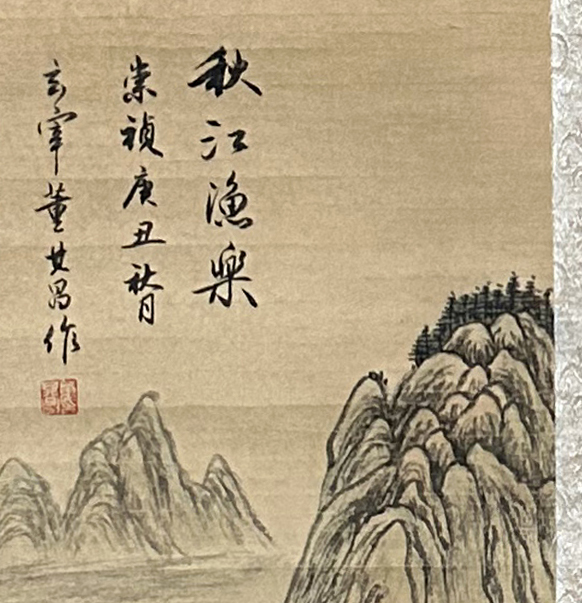 秋江漁樂
崇禎庚丑秋月
玄宰董其昌作